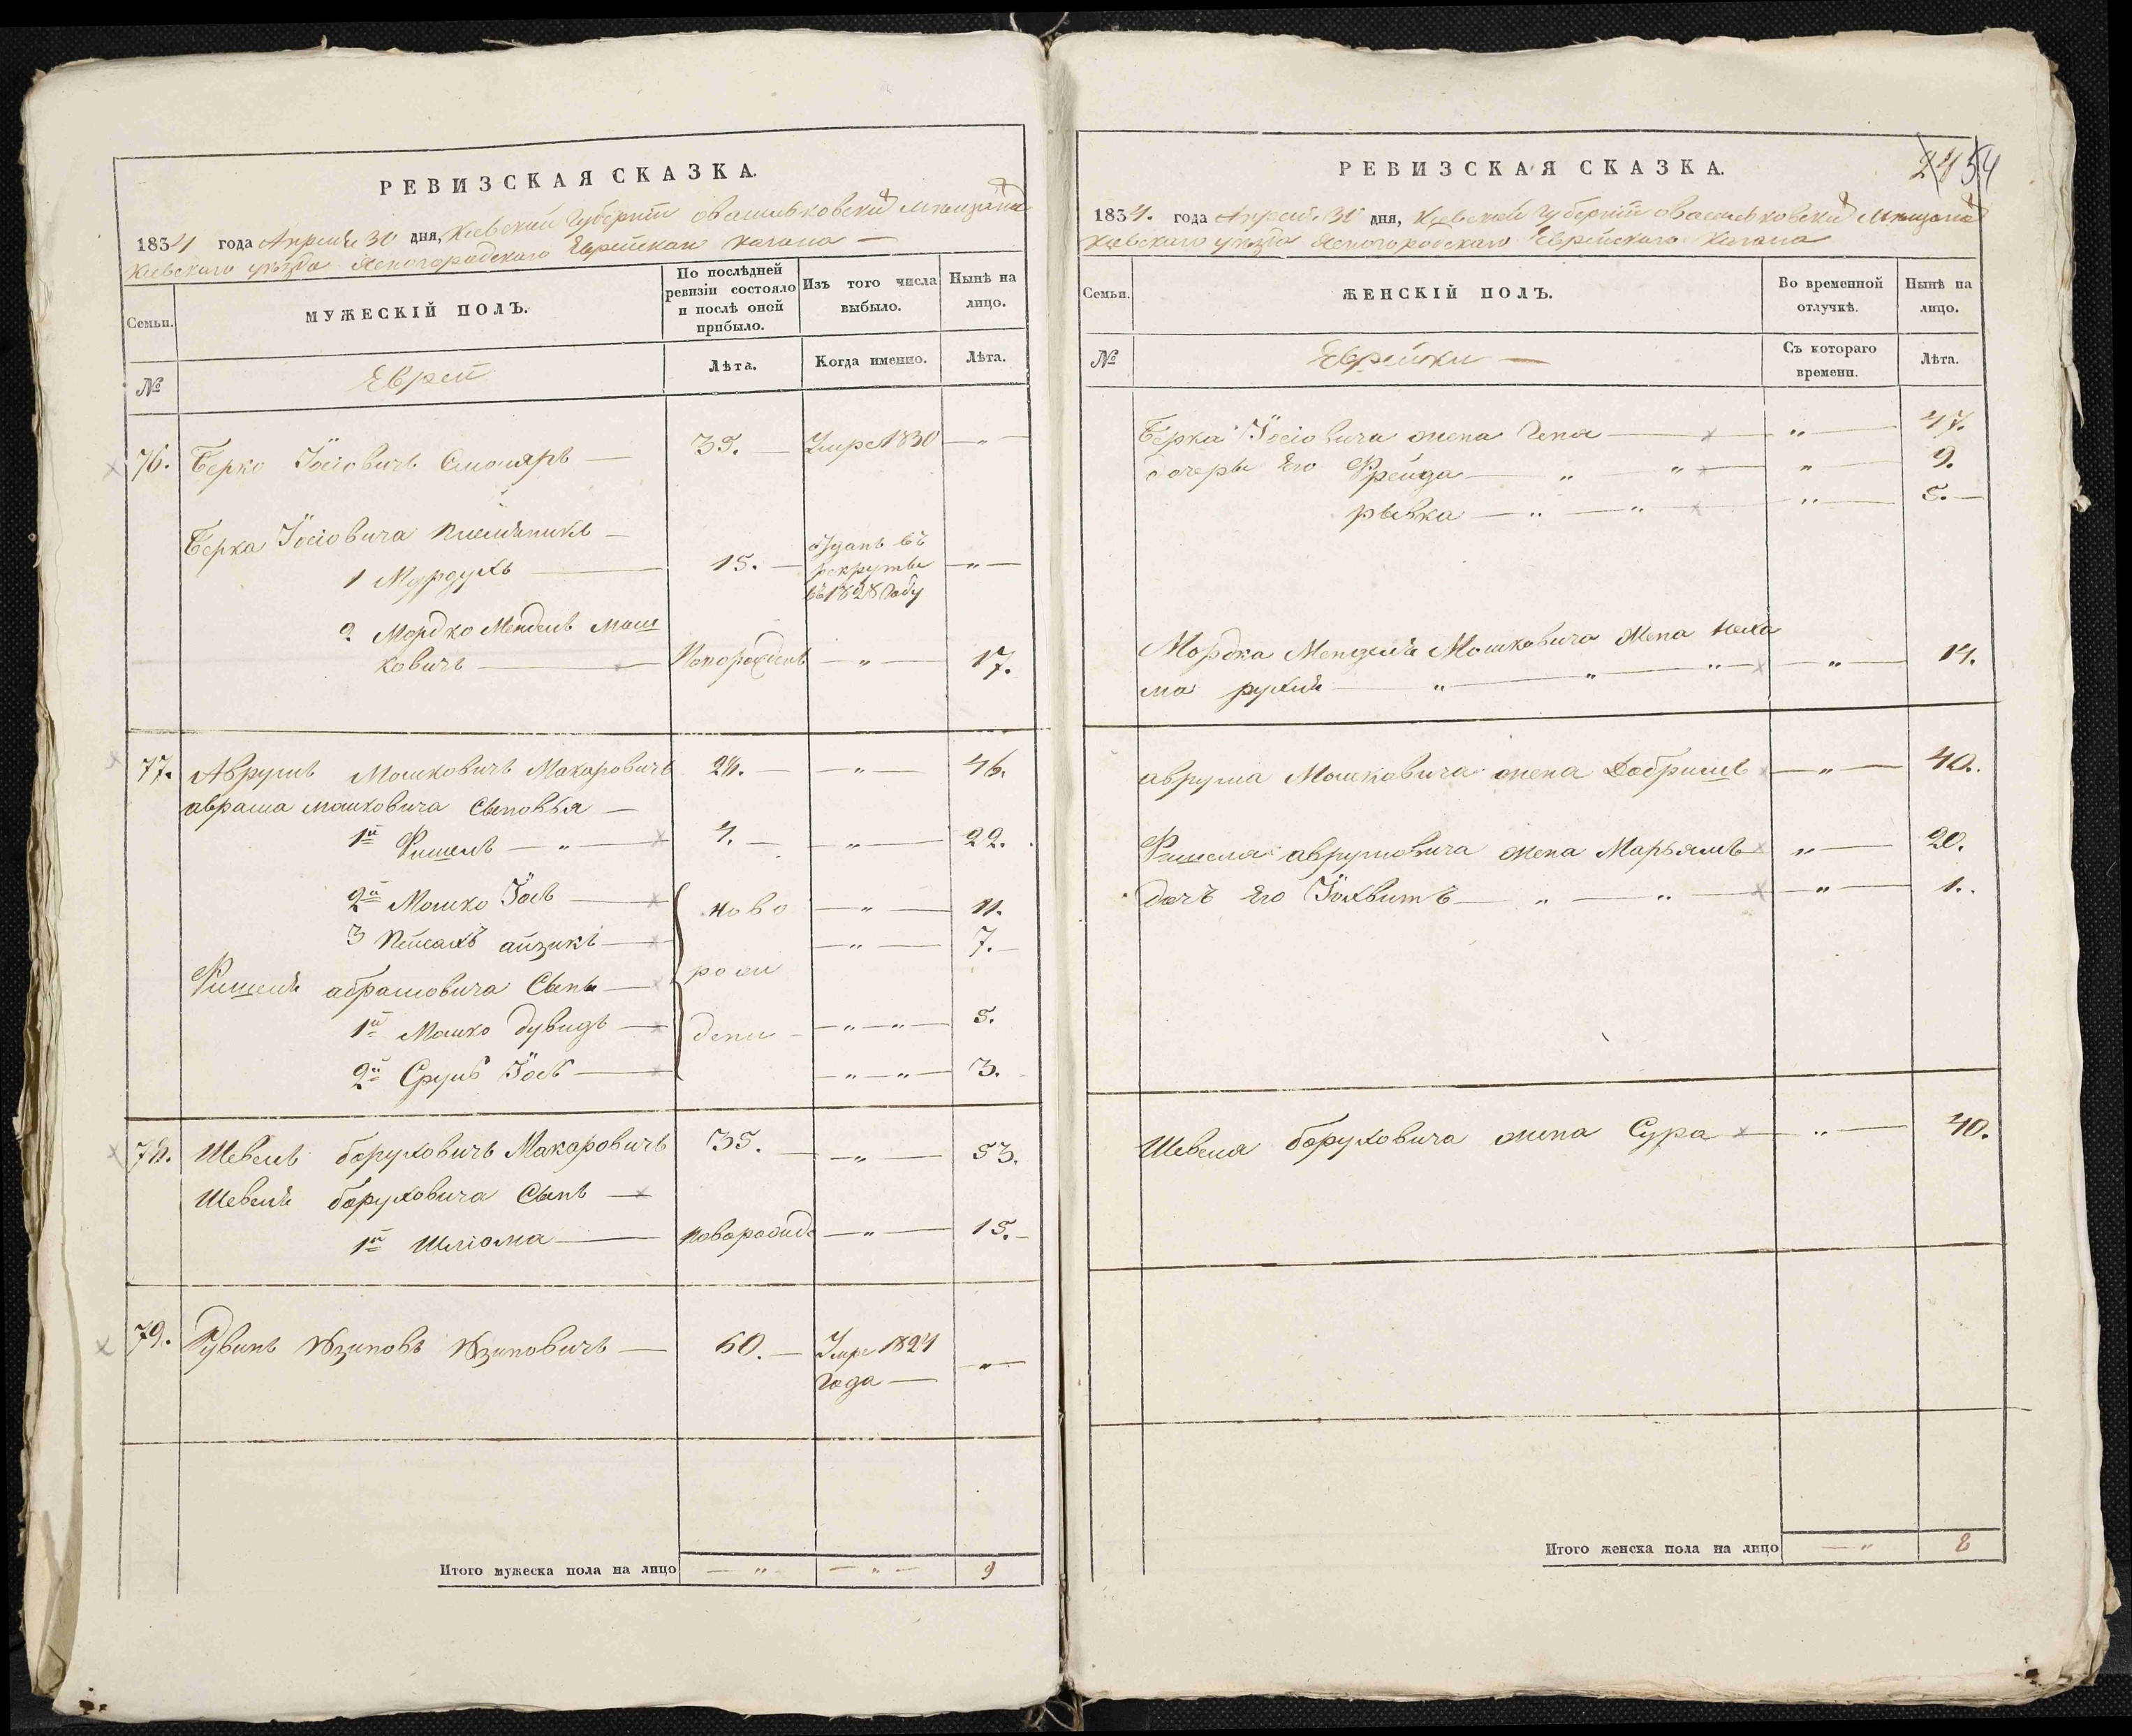 РЕВИЗСКАЯ СКАЗКА.
1834 года Апреля 30 дня, Кіевской Губерніи о Васильковскихъ Мещанахъ
Кіевскаго уѣзда Ясногородскаго Еврейскаго Кагала —
Семьи.
МУЖЕСКІЙ ПОЛЪ.
По послѣдней ревизіи состояло и послѣ оной прибыло.
Изъ того числа выбыло.
Нынѣ на лицо.
№
Евреи
Лѣта.
Когда именно.
Лѣта.
76. Берко Іосіовичъ Смоляръ — 35. — Умре 1830 — „ —
Берка Іосіовича племѣникъ —
1 Мурдухъ — 15. — отданъ въ рекруты въ 1828 году — „ —
2 Мордко Мендель Мош
ковичъ — Новорожденъ — „ — 17.
77. Аврумъ Мошковичъ Макаровичъ 28. — — „ — 46.
Аврама Мошковича Сыновья —
1й Фишель — „ — 4. — — „ — 22.
2й Мошко Іосъ — ново — „ — 11.
3 Пейсахъ айзикъ — — „ — 7. —
Фишеля абрамовича Сыны — рож
1й Мошко Дувидъ — дени — — „ — „ — 5.
2й Сруль Іосъ — — „ — „ — 3.
78. Шевель боруховичъ Макаровичъ 35. — — „ — 53.
Шевеля боруховича Сынъ —
1й Шліома — новорожд — „ — 15. —
79. Рувинъ — 60. — Умре 1824 — „ —
года —
Итого мужеска пола на лицо — „ — — „ — 9
РЕВИЗСКАЯ СКАЗКА.
54
1834. года Апреля 30 дня, Кіевской Губерніи о Васильковскихъ Мещанахъ
Кіевскаго уѣзда Ясногородскаго Еврейскаго Кагала
Семьи.
ЖЕНСКІЙ ПОЛЪ.
Во временной отлучкѣ.
Нынѣ на лицо.
№
Еврейки —
Съ котораго времени.
Лѣта.
Берка Іосіовича жена — „ — 47.
дочеры Его Фрейда — „ „ — „ — 9.
рывка — „ — „ — „ — 5. —
Мордка Менделя Мошковича жена Неха
ма рухля — „ — „ — „ — — „ — 19.
аврума Мошковича жена Добришъ — „ — 40.
Фишеля аврумовича жена Марьямъ „ — 20.
дочъ Его Іохвитъ — „ — „ — „ — 1.
Шевеля боруховича жена Сура — „ — 40.
Итого женска пола на лицо — „ 8